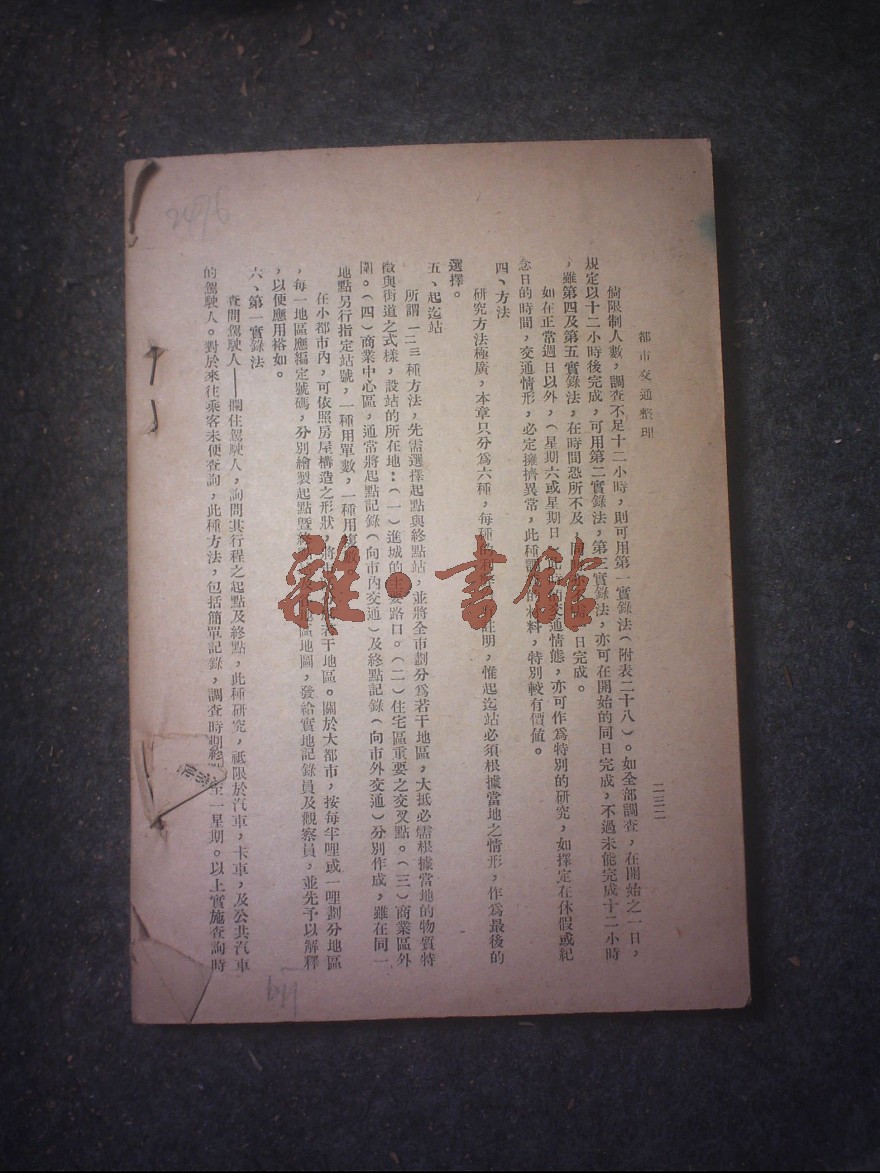 都市交通整理
二三二
倘限制人數，調查不足十二小時，則可用第一實錄法（附表二十八）。如全部調查，在開始之一日，
規定以十二小時後完成，可用第二實錄法，第三實錄法，亦可在開始的同日完成，不過未能完成十二小時
，雖第四及第五實錄法，在時間恐所不及，日完成。
如在正常週日以外，（星期六或星期日交通情態，亦可作爲特別的研究，如擇定在休假或紀
念日的時間，交通情形，必定擁擠異常，此種材料，特別較有價值。
四、方法
研究方法極廣，本章只分爲六種，每種註明，惟起迄站必須根據當地之情形，作爲最後的
選擇。
五、起迄站
所謂一二三種方法，先需選擇起點與終點站，並將全市劃分爲若干地區，大抵必需根據當地的物質特
徵與街道之式樣，設站的所在地：（一）進城的主要路口。（二）住宅區重要之交叉點。（三）商業區外
圍。（四）商業中心區，通常將起點記錄（向市內交通）及終點記錄（向市外交通）分別作成，雖在同一
地點另行指定站號，一種用單數，一種用
在小都市內，可依照房屋構造之形狀，將若干地區。關於大都市，按每半哩或一哩劃分地區
，每一地區應編定號碼，分別繪製起點暨地區地圖，發給實地記錄員及觀察員，並先予以解釋
，以便應用裕如。
六、第一實錄法
查問駕駛人——攔住駕駛人，詢問其行程之起點及終點，此種研究，祗限於汽車，卡車，及公共汽車
的駕駛人。對於來往乘客未便查詢，此種方法，包括簡單記錄，調查時期至一星期。以上實施查詢時
2476
雜·書館